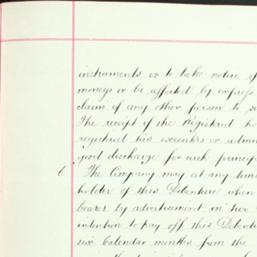 instruments or to take notice of
moneys or be affected by express
claim of any other person to su
The receipt of the Registered ho
registered his executors or admin
good discharge for such princip
6 The Company may at any time
holder of this Debenture when
bearer by advertisement in two
intention to pay off this Debent
six Calendar months from the